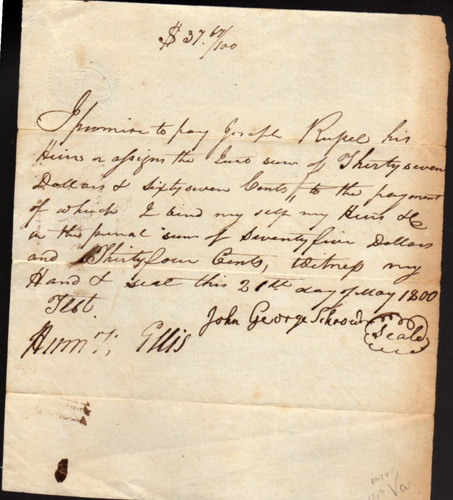 $ 37. 67/100
I promise to pay Joseph Rupel his
Heirs or assigns the Just sum of Thirty seven
Dollars & Sixty seven Cents, to the payment
of which I bind my self my Heirs &c
in the penal sum of Seventy five Dollars
and Thirty four Cents, Witness my
Hand & Seal this 21th day of May 1800
Test. John George Seale
Ellis
Va